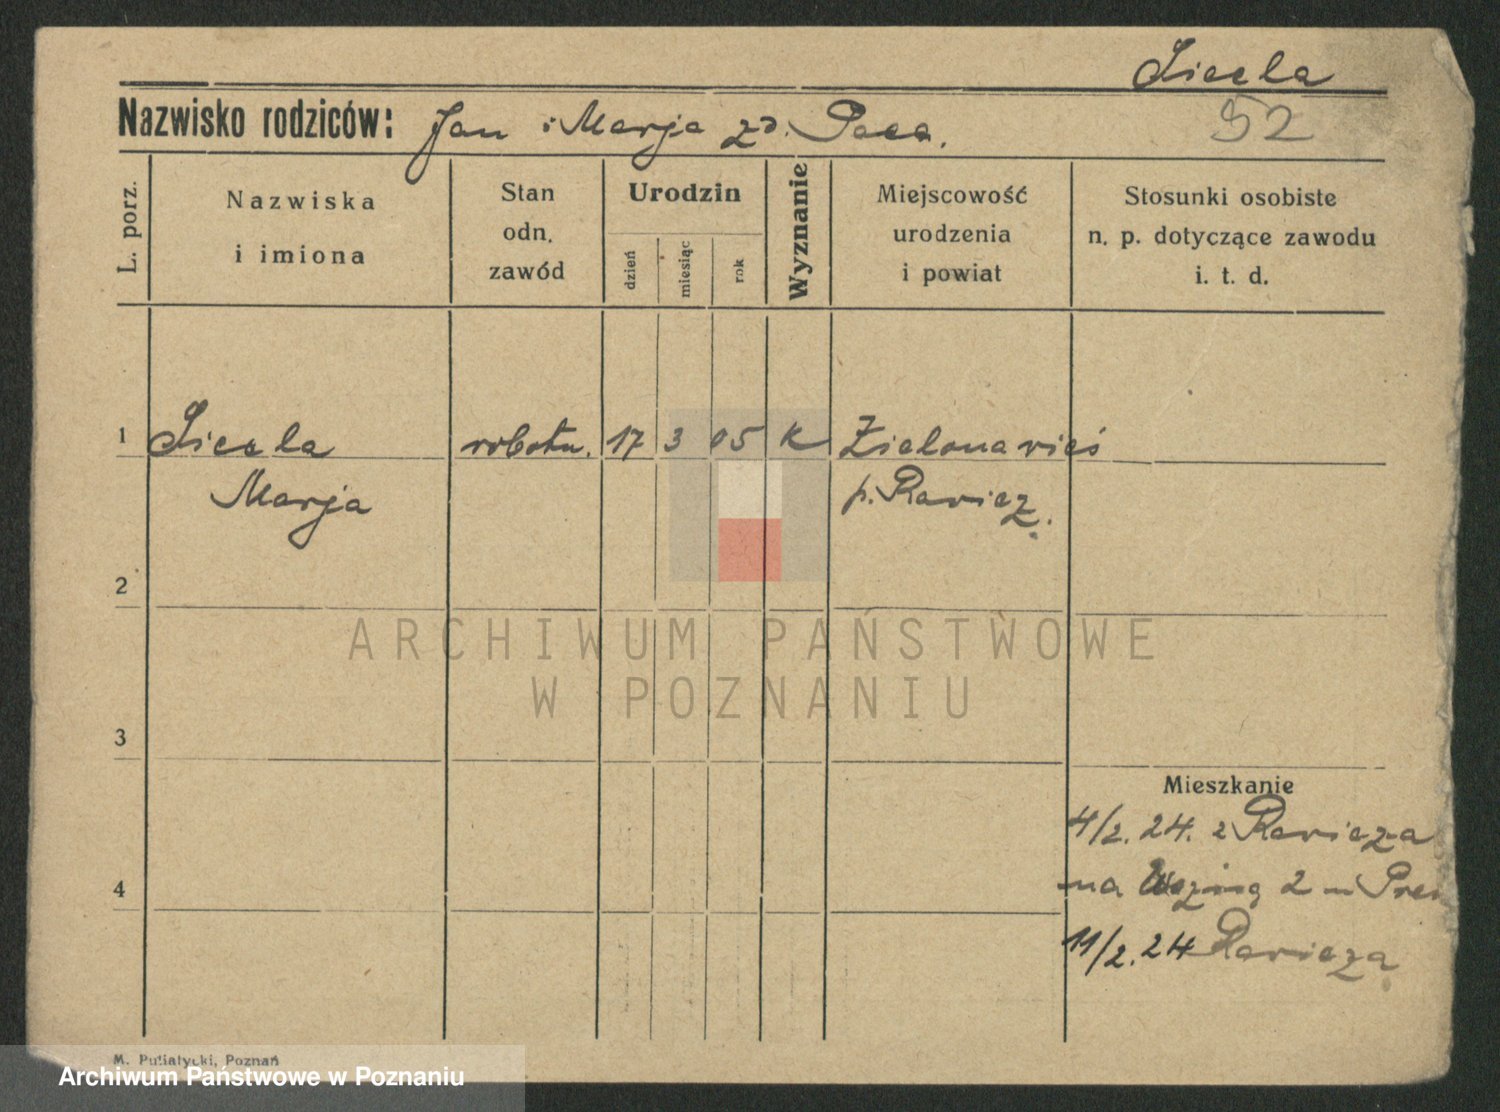 Siecla
52
Nazwisko rodziców: Jan i Marja zd. Paca.
L. porz.
Nazwiska
i imiona
Stan
odn.
zawód
Urodzin
dzień
miesiąc
rok
Wyznanie
Miejscowość
urodzenia
i powiat
Stosunki osobiste
n. p. dotyczące zawodu
i. t. d.
1 Siecla robotn. 17 3 05 K Zielonawieś
Marja p. Rawicz.
2
ARCHIWUM PAŃSTWOWE
W POZNANIU
3
Mieszkanie
4/2. 24. z Rawicza
4
na 2
11/2. 24 Rawicza
M. Putiatycki, Poznań
Archiwum Państwowe w Poznaniu